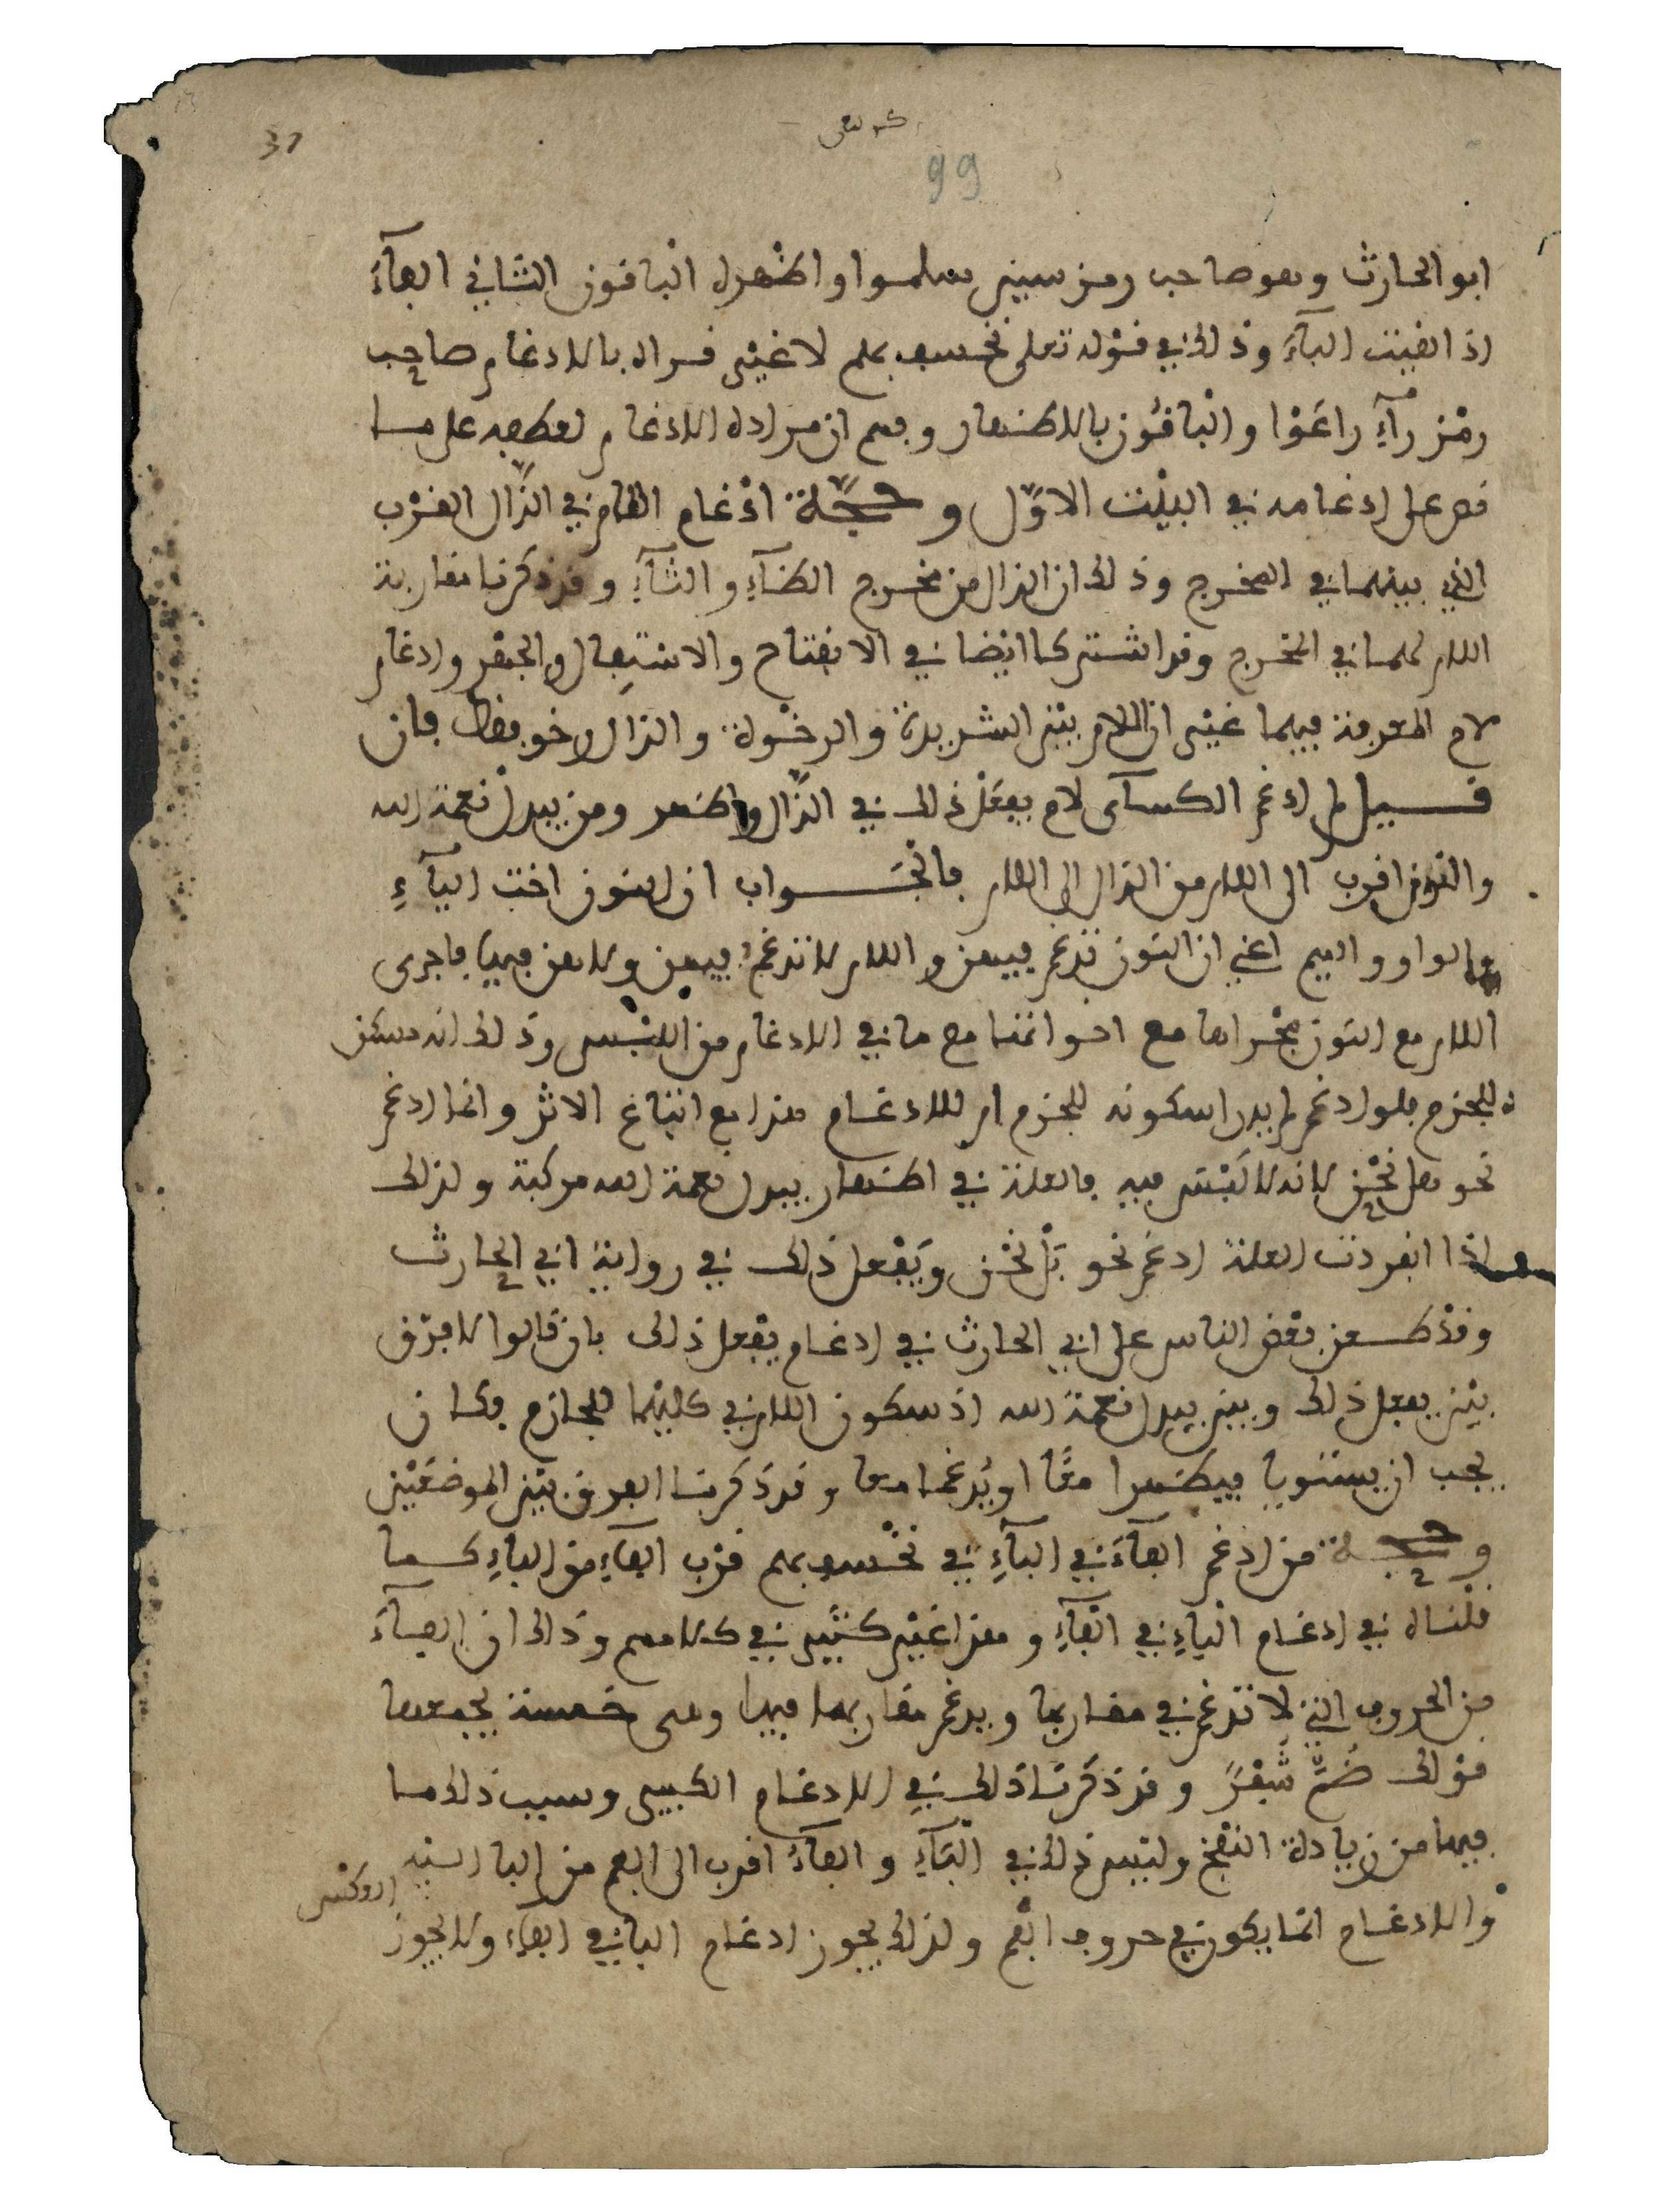 37
99
ابو الحارث وهو صاحب رمز سين سلموا واظهره الباقون الثاني الفآء
اذا لقيت البآء وذلك في قوله تعلى نخسف بهم لا غير قراه بالادغام صاحب
رمز رآء راعَوْا والباقُون بالاظهار وفهم ان مراده الادغام لعطفه على ما
نص على ادغامه في البيْت الاوَّل وحجّة ادْغام اللام في الذّال القرْب
الذي بينهما في المخرج وذلك ان الذال من مخرج الظآء والثآء وقد ذكرنا مقاربة
اللام لهما في المخرج وقد اشتركا ايْضا في الانفتاح والاستِفال والجهْر وادغام
لام المعرفة فيهما غيْر ان اللام بيْن الشديدة والرخْوة والذال رخو فقط فان
قيل لم ادغم الكسآى لام يفعَلْ ذلك في الذّال واظهر ومن يبدلْ نعْمة الله
والنون اقرب الى اللام من الذال الى اللام فالْجَواب ان النون اخت اليآءِ
والواو والميم اعني ان النون تدغم فيهن واللام لا تدغم فيهن ولا هن فيها فاجرى
اللام مع النون مجْراها مع اخواتها مع ما في الادغام من اللبْس وذلك انه مسكن
للجزم فلو ادغم لم يدر اسكونه للجزم ام للادغام هذا مع اتباع الاثر وانما ادغم
نحو هل نحْن لانه لا لَبْس فيه فالعلة في اظهار يبدل نعمة الله مركبة ولذلك
اذا انفردت العلة ادغم نحو بَل نحْن ويَفْعل ذلك في رواية ابي الحارث
وقدْ طعن بعْض الناس على ابي الحارث في ادغام يفْعل ذلك بان قالوا لا فرْق
بيْن يفعل ذلك وبين يبدل نعمةَ الله اذ سكون اللام في كليْهما للجازم فكان
يجب ان يستويا فيظهرا معًا او يُدغما معا وقد ذكرنا الفرق بيْن الموضعَيْن
وحجة من ادغم الفآءَ في البآءِ في نخْسف بهم قرْب الفاءِ من الباءِ كما
قلناه في ادغام الْباءِ في الْفآءِ وهذا غيْر كثيْر في كلامهم وذلك ان الفآءَ
من الحروف التي لا تدغم في مقاربها ويدغم مقاربها فيها وهى خمسة يجمعها
قوْلك ضُمَّ شَفْرً وقد ذكرنا ذلك في الادغام الكبير وسبب ذلك ما
فيها من زيادة النفْخ وليْس ذلك في الْبآءِ والفآءُ اقرب الى الفم من البا لسنه
والادغام انما يكون في حروف الْفم ولذلك يجوز ادغام البا في الفاء ولا يجوز